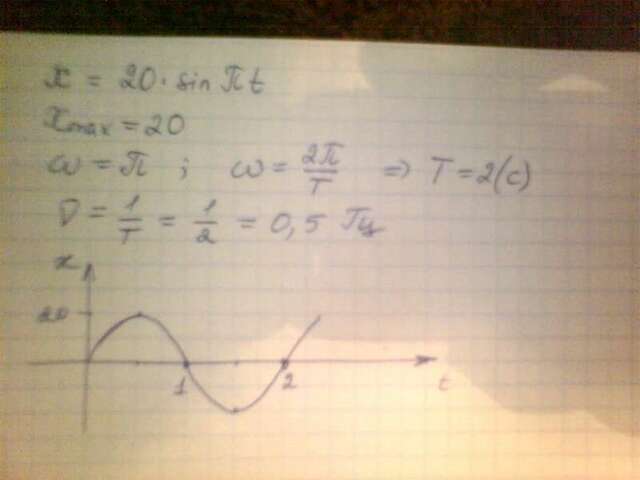 x = 20 · sin πt
Xmax = 20
ω = π ; ω = 2π/T => T = 2(с)
ν = 1/T = 1/2 = 0,5 Гц
x
20
1
2
t